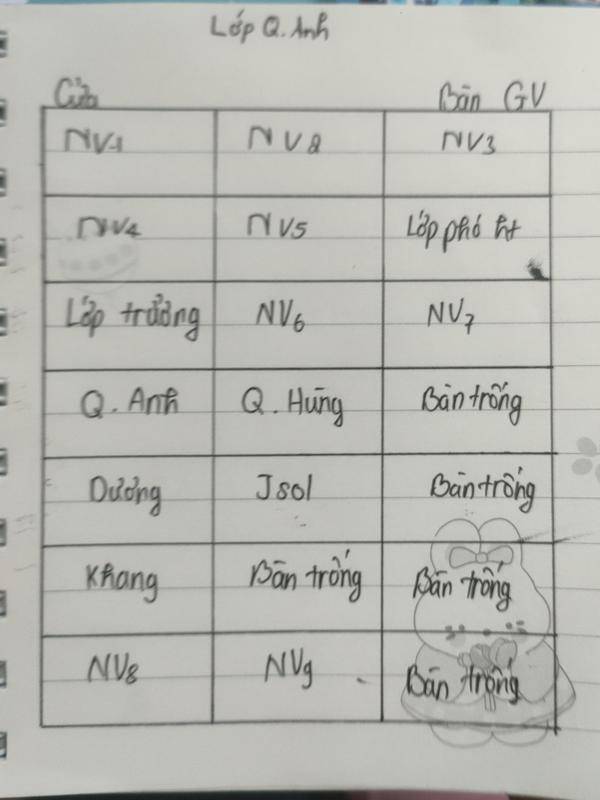 Lớp Q. Anh
Cửa Bàn GV
NV1 NV2 NV3
NV4 NV5 Lớp phó ht
Lớp trưởng NV6 NV7
Q. Anh Q. Hùng Bàn trống
Dương Jsol Bàn trống
Khang Bàn trống Bàn trống
NV8 NV9 Bàn trống